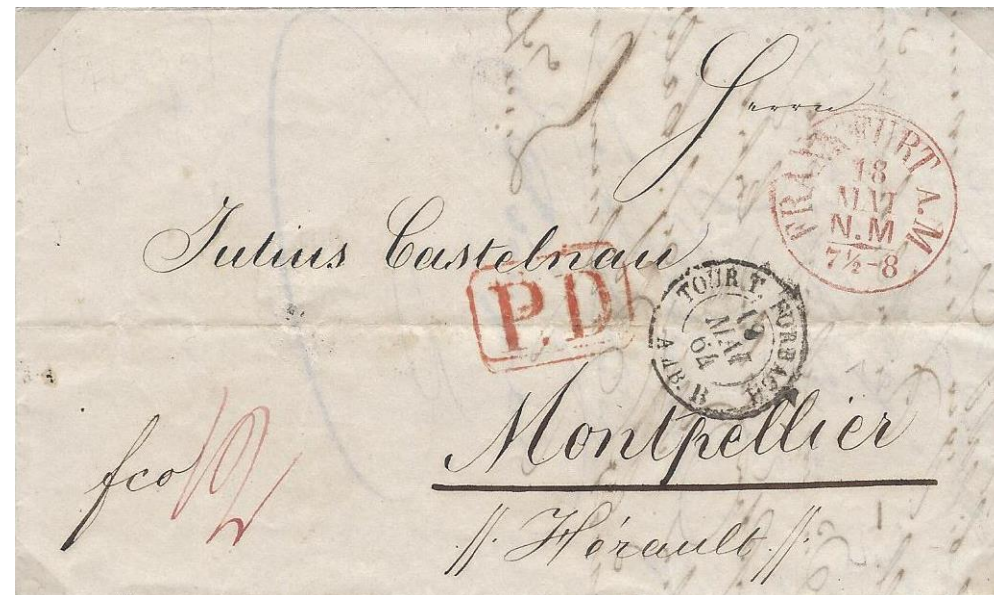 Herrn
FRANKFURT A.M.
18
MAI
N.M
7½-8
Julius Castelnau
P.D
TOUR T. FORBACH
19
MAI
64
Montpellier
fco 12
//. Hérault .//